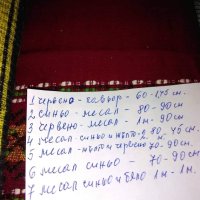 1 червена - ковьор - 60-1,45 см.
2 синьо - месал - 80-90 см
3 червено - месал - 1 м. - 90 см
4 месал - синьо и жълто - 2. 80. 45 см.
5 месал - жълто и червено 70-90 см.
6 месал синьо - 70-90 см
7 месал синьо и бяло 1 м - 1 м.